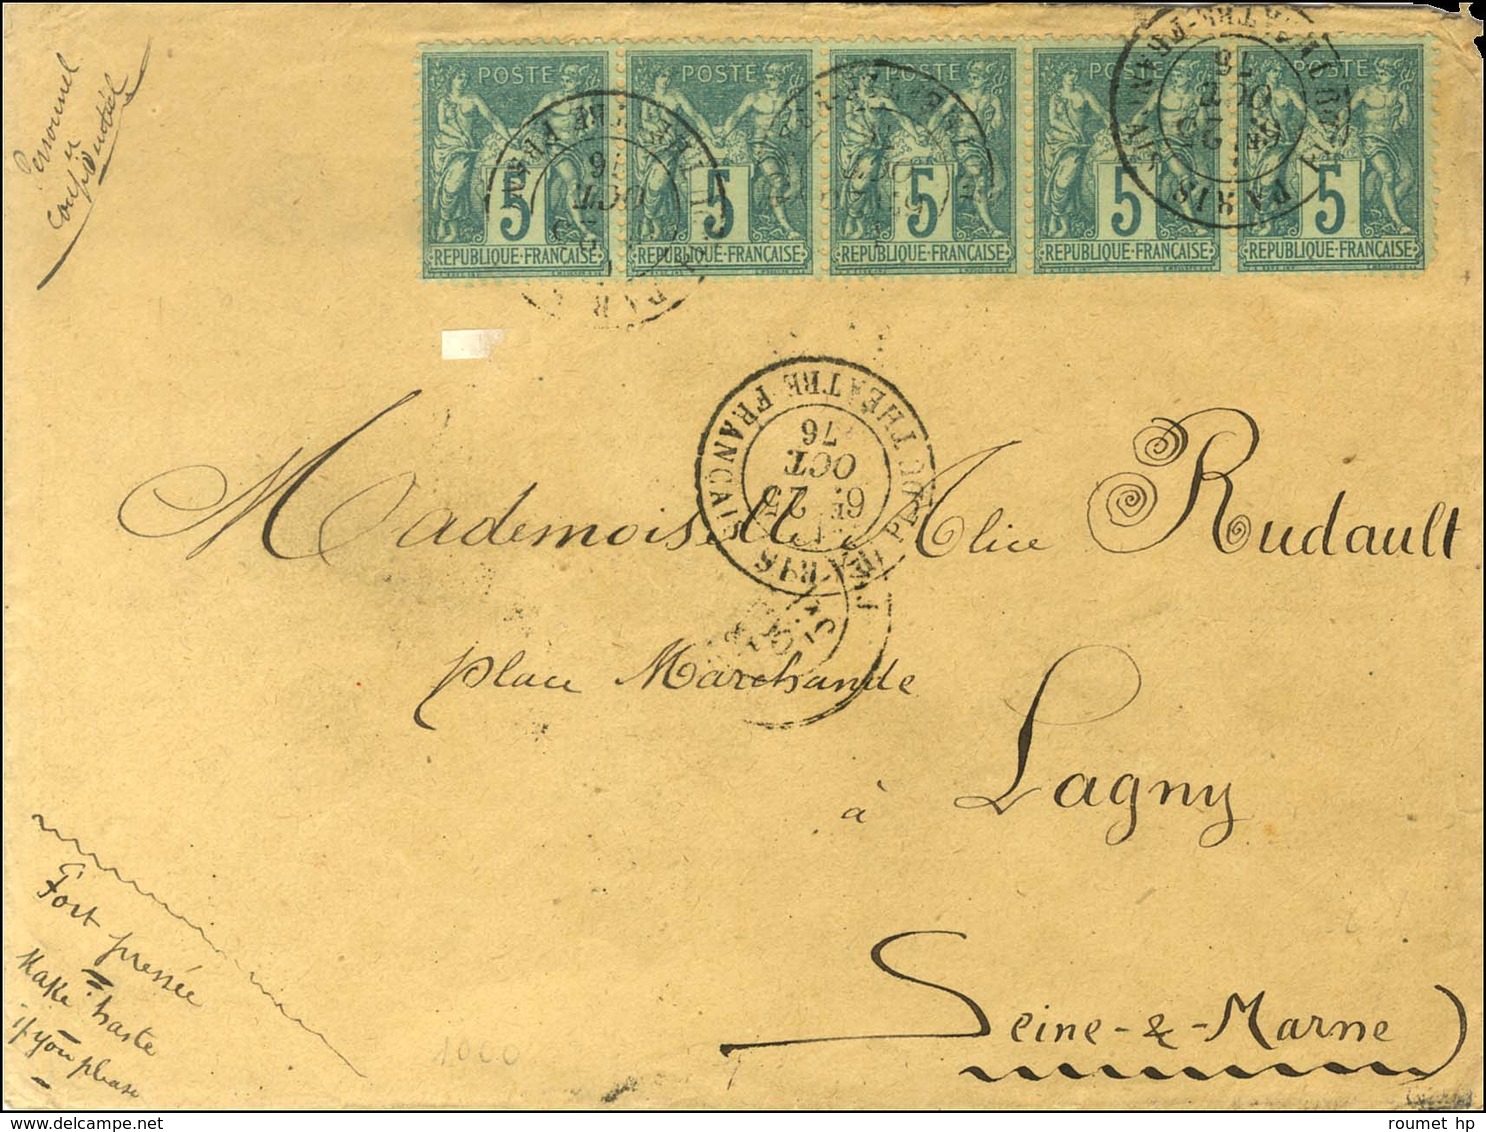 Personnel
et
confidentiel
POSTE POSTE POSTE POSTE POSTE
5 5 5 5 5
REPUBLIQUE-FRANCAISE REPUBLIQUE-FRANCAISE REPUBLIQUE-FRANCAISE REPUBLIQUE-FRANCAISE REPUBLIQUE-FRANCAISE
PL. DU THEATRE FRANÇAIS
PARIS
6E 25
OCT.
76
Mademoiselle Alice Rudault
place Marchande
à Lagny
Seine-&-Marne
Fort pressée
Make haste
if you please
1000
roumet hp